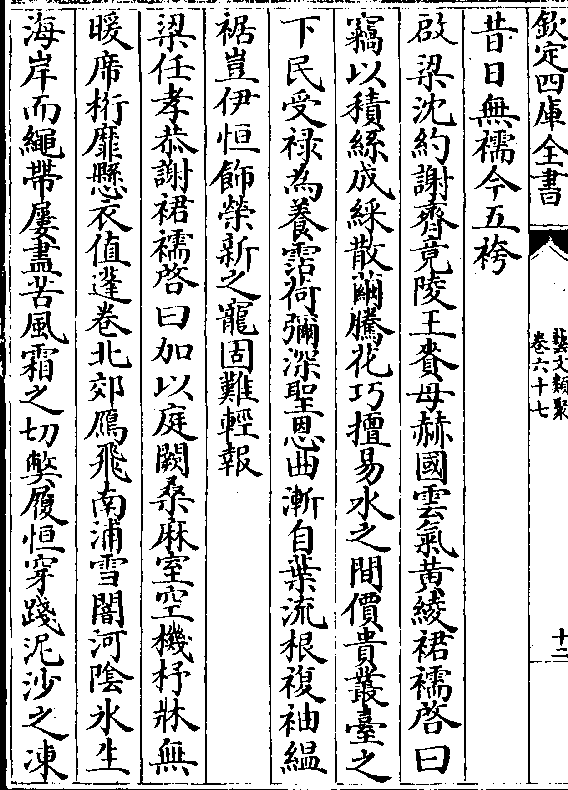 欽定四庫全書
藝文類聚
卷六十七
十二
昔日無襦今五袴
啟 梁沈約謝齊竟陵王賚母赫國雲氣黃綾裙襦啓曰
竊以積絲成綵散繭騰花巧擅易水之間價貴叢臺之
下民受祿為養霑荷彌深聖恩曲漸自葉流根複袖緼
裾豈伊恒飾榮新之寵固難輕報
梁任孝恭謝裙襦啓曰加以庭闕桑麻室空機杼牀無
暖席桁靡懸衣值蓬卷北郊鴈飛南浦雪闇河陰冰生
海岸而繩帶屢盡苦風霜之切弊履恒穿踐泥沙之凍